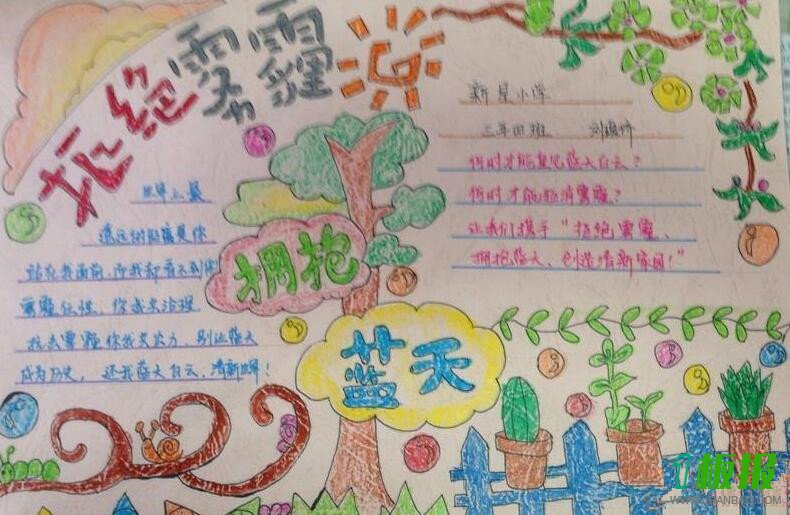 拒绝雾霾
新星小学
三年四班 刘
何时才能重见蓝天白云?
何时才能驱消雾霾?
让我们携手“拒绝雾霾、
拥抱蓝天、创造清新家园!”
世界上最
遥远的距离是你
站在我面前,而我却看不到你
雾霾狂怪、你我共治理
抗击雾霾你我共出力、别让蓝天
成为历史, 还我蓝天白云、清新世界!
拥抱
蓝天
板报